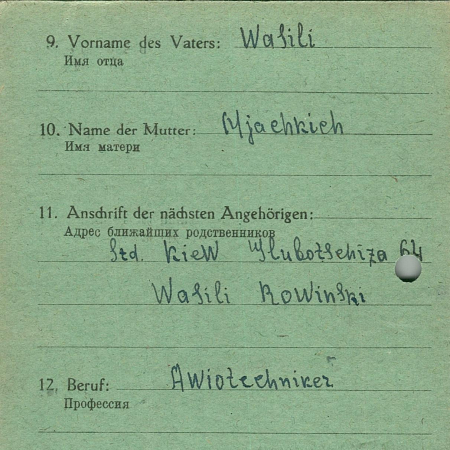 9. Vorname des Vaters: Wasili
Имя отца
10. Name der Mutter: Mjachkich
Имя матери
11. Anschrift der nächsten Angehörigen:
Адрес ближайших родственников
Std. Kiew Glubotschiza 64
Wasili Rowinski
12. Beruf: Awiotechniker
Профессия